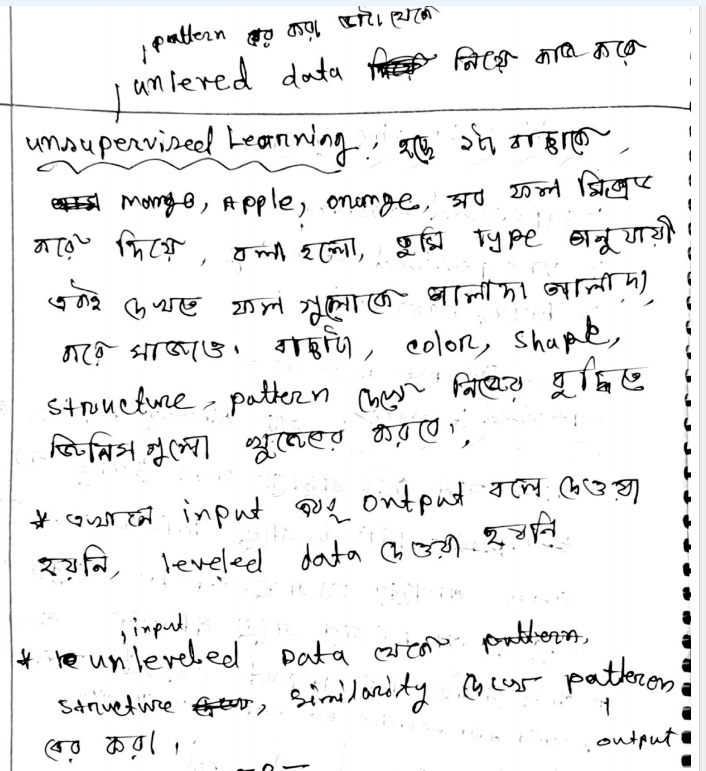 pattern বের করা ডাটা থেকে
unlevered data নিয়ে কাজ করে
unsupervised Learning, হচ্ছে ২টা বাচ্চাকে
Mango, Apple, orange, সব ফল মিক্সড
করে দিয়ে, বলা হলো, তুমি Type অনুযায়ী
একই দেখতে ফল গুলোকে আলাদা আলাদা
করে সাজাও। বাচ্চাটা, color, shape,
structure, pattern দেখে নিজের বুদ্ধিতে
জিনিস গুলো খুজেবের করবে।,
* এখানে input এবং output বলে দেওয়া
হয়নি, leveled data দেওয়া হয়নি
input
* unleveled Data থেকে pattern,
structure, similarity দেখে patteren
বের করা।
output